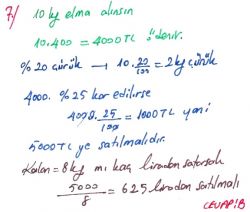 7/ 10 kg elma alınsın
10.400 = 4000 TL öder.
% 20 çürük → 10. 20/100 = 2 kg çürük
4000. % 25 kar edilirse
4000. 25/100 = 1000 TL yani
5000 TL ye satılmalıdır.
Kalan = 8 kg mı kaç liradan satarsak
5000/8 = 625 liradan satılmalı
CEVAP: B